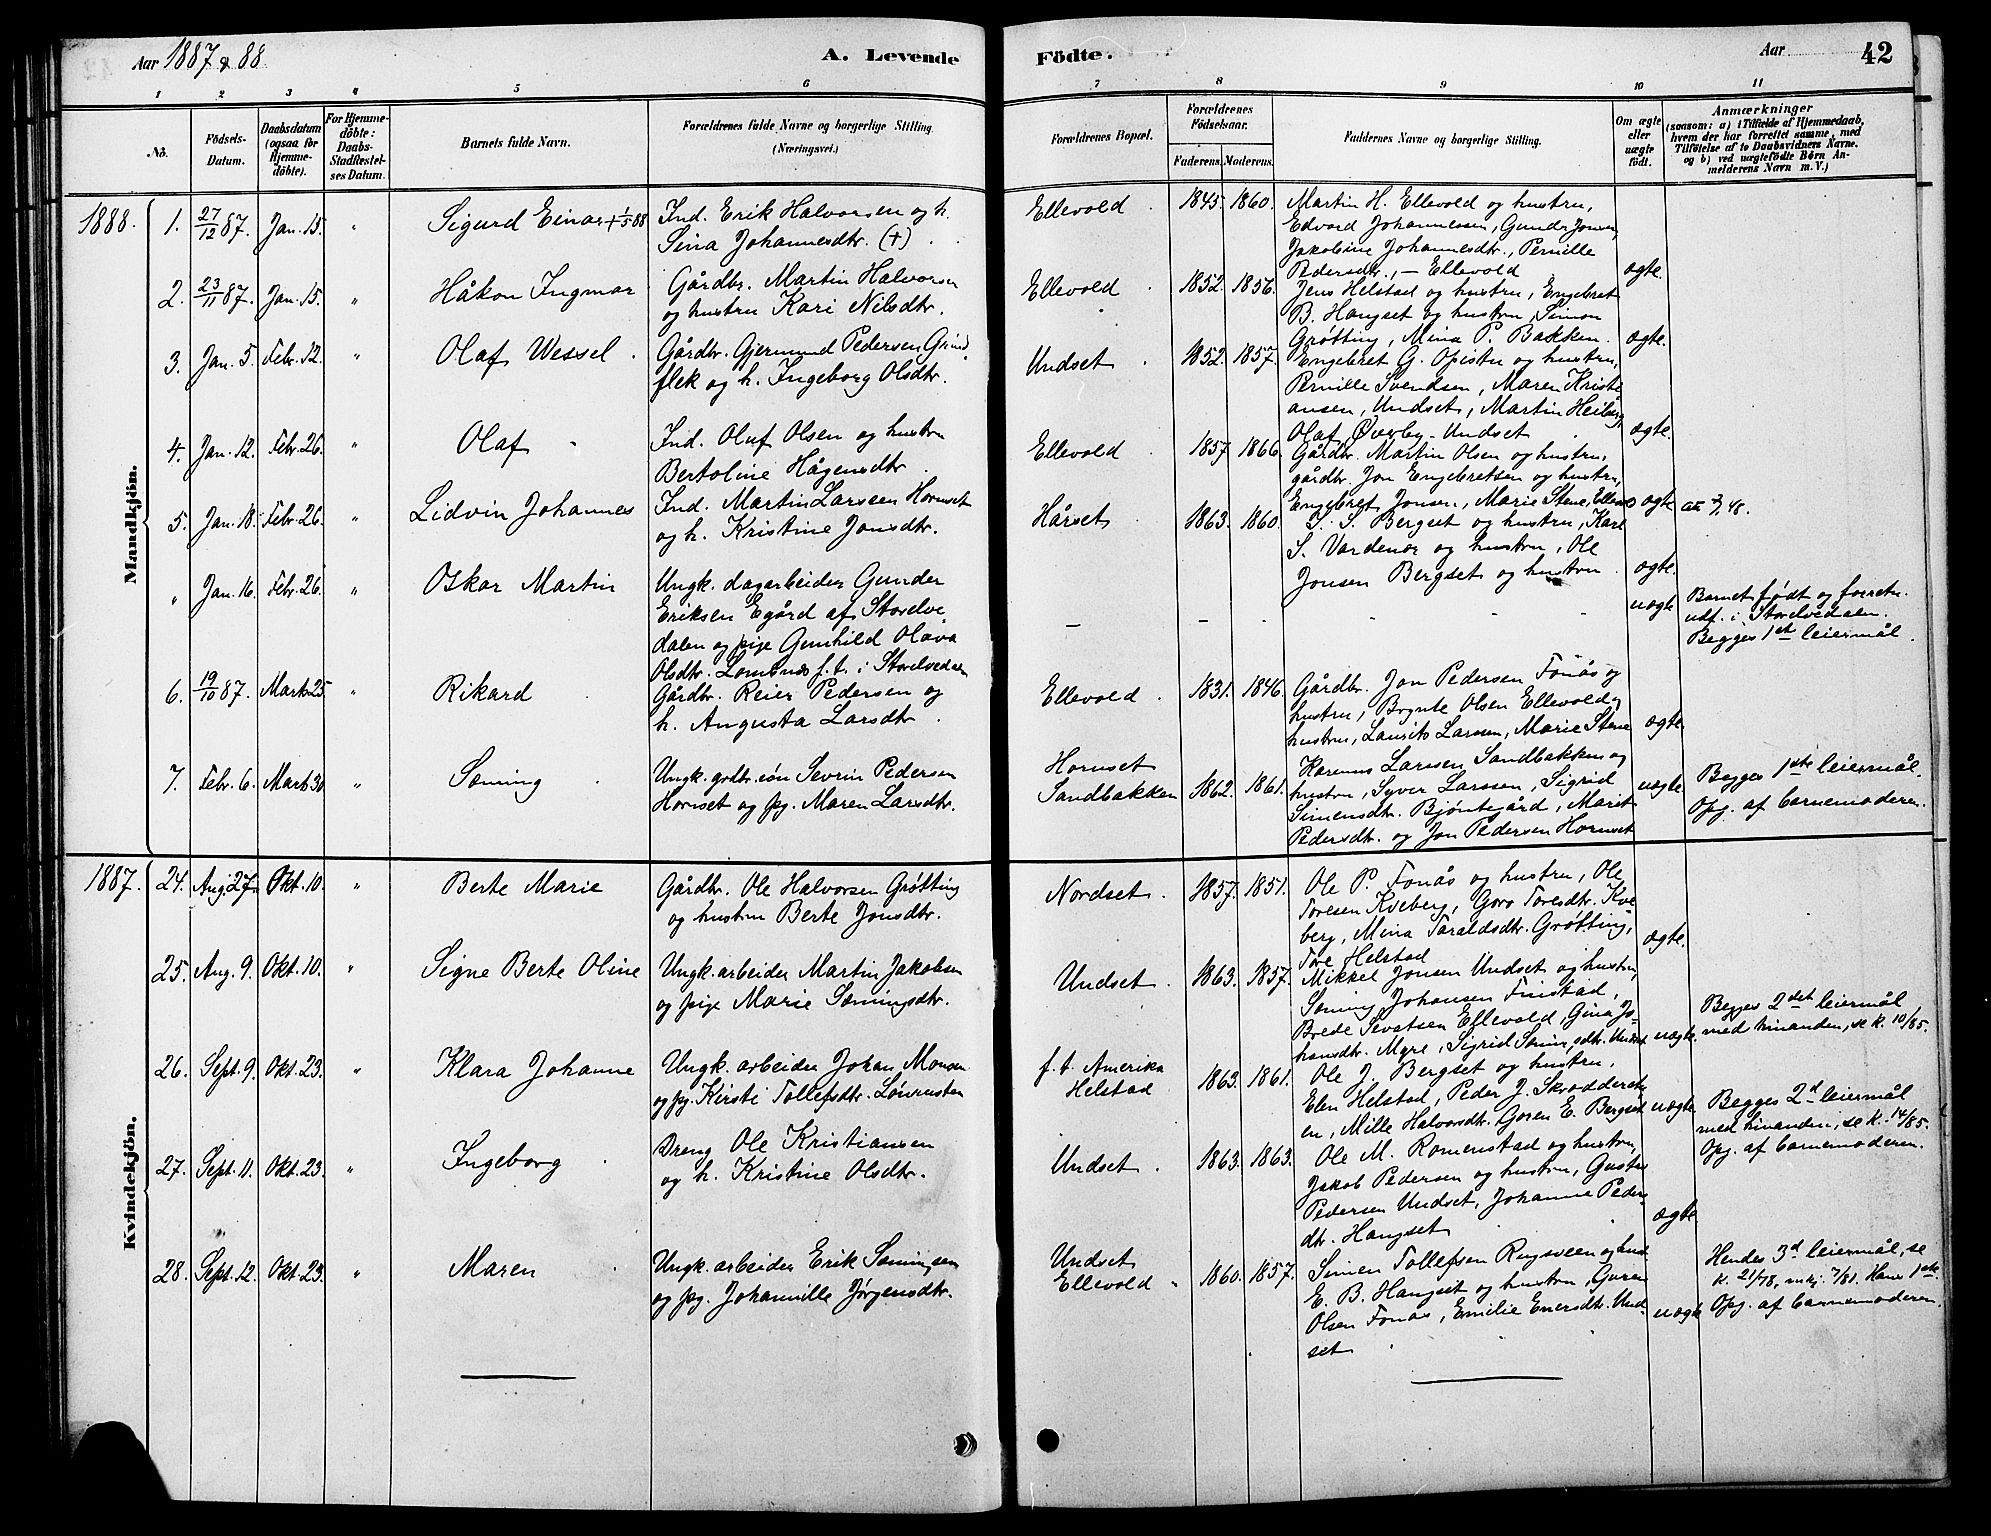 Aar 1887 & 88
A. Levende
Födte.
Aar
42
1 2 3 4 5 6 7 8 9 10 11
No.
Födsels-
Datum.
Daabsdatum
(ogsaa for
Hjemme-
döbte).
For Hjemme-
döbte:
Daabs-
Stadfæstel-
ses Datum.
Barnets fulde Navn.
Forældrenes fulde Navne og borgerlige Stilling.
(Næringsvei.)
Forældrenes Bopæl.
Forældrenes
Födselsaar.
Faderens. Moderens.
Faddernes Navne og borgerlige Stilling.
Om ægte
eller
uægte
födt.
Anmærkninger
(saasom: a) i Tilfælde af Hjemmedaab,
hvem der har forrettet samme, med
Tilföielse af to Daabsvidners Navne.
og b) ved uægtefödte Börn An-
melderens Navn m. V.)
Mandkjön.
1888. 1. 27/12 87. Jan. 15. " Sigurd Einar + 1/5 88
Ind. Erik Halvorsen og h.
Sina Johannesdtr. (+)
Ellevold 1845. 1860.
Martin H. Ellevold og hustru,
Edvard Johannessen, Gunder Jonsen,
Jakobine Johannesdtr., Pernille
Pedersdtr., – Ellevold
ægte.
2. 23/11 87. Jan. 15. " Håkon Ingmar
Gårdbr. Martin Halvorsen
og hustru Kari Nilsdtr.
Ellevold 1852. 1856.
Jens Helstad og hustru, Engebret
B. Hangset og hustru, Simon
Grøtting, Mina P. Bakken.
ægte.
3. Jan. 5. Febr. 12. " Olaf Wessel
Gårdbr. Gjermund Pedersen Grind
flek og h. Ingeborg Olsdtr.
Undset 1852. 1857.
Engebret G. Opistu og hustru,
Pernille Svendsen, Maren Kristi
ansen, Undset, Martin Heiberg,
Olaf Øverby – Undset
ægte.
4. Jan. 12. Febr. 26. " Olaf
Ind. Oluf Olsen og hustru
Bertoline Hågensdtr.
Ellevold 1857 1866.
Gårdbr. Martin Olsen og hustru,
gårdbr. Jon Engebretsen og hustru,
Engebret Jonsen, Marie Stene,
ægte
5. Jan. 18. Febr. 26. " Lidvin Johannes
Ind. Martin Larsen Hornset
og h. Kristine Jonsdtr.
Hårset 1863. 1860.
S. S. Bergset og hustru, Karl
S. Vardenær og hustru, Ole
Jonsen Bergset og hustru
ægte.
" Jan. 16. Febr. 26. " Oskar Martin
Ungk. dagarbeider Gunder
Eriksen Egård af Storelve
dalen og pige Gunhild Olava
Olsdtr. Lomsnes f. t. i Storelvedalen
– – –
uægte
Barnet født og forretn.
udf. i Storelvedalen.
Begges 1st leiermål.
6. 19/10 87. Marts 25. " Rikard
Gårdbr. Reier Pedersen og
h. Augusta Larsdtr.
Ellevold. 1831. 1846.
Gårdbr. Jon Pedersen Fonås og
hustru, Brynte Olsen Ellevold og
hustru, Laurits Larsen, Marie Stene
ægte.
7. Febr. 6. Marts 30 " Sæming
Ungk. grdbr. søn Sevrin Pedersen
Hornset og pg. Maren Larsdtr.
Hornset
Sandbakken 1862. 1861.
Karenus Larsen Sandbakken og
hustru, Syver Larsen, Sigrid
Simensdtr. Bjøntegård, Marit
Pedersdtr. og Jon Pedersen Hornset
uægte.
Begges 1ste leiermål.
Opg. af barnemoderen.
Kvindekjön.
1887. 24. Aug 27 Okt. 10. " Berte Marie
Gårdbr. Ole Halvorsen Grøtting
og hustru Berte Jonsdtr.
Nordset. 1857. 1851.
Ole P. Fonås og hustru, Ole
Toresen Kveberg, Goro Toresdtr. Kve
berg, Mina Taraldsdtr. Grøtting,
Tore Helstad
ægte.
25. Aug. 9. Okt. 10. " Signe Berte Oline
Ungk. arbeider Martin Jakobsen
og pige Marie Sæmingsdtr.
Undset. 1863. 1857.
Mikkel Jonsen Undset og hustru,
Sæming Johansen Finstad,
Brede Sivatsen Ellevold, Gina Jo-
hansdtr. Myre, Sigrid Sæmingsdtr. Undset
uægte.
Begges 2det leiermål
med hinanden, se k. 10/85.
26. Sept. 9. Okt. 23. " Klara Johanne
Ungk. arbeider Johan Monsen
og pg. Kirsti Tollefsdtr. Løvensten
f. t. Amerika
Helstad 1863. 1861.
Ole J. Bergset og hustru,
Elen Helstad, Peder J. Skrædderstu
en, Mille Halvorsdtr. Goren E. Bergset
uægte
Begges 2d leiermål
med hinanden, se k. 14/85.
Opg. af barnemoderen.
27. Sept. 11. Okt. 23. " Ingeborg
Dreng Ole Kristiansen
og h. Kristine Olsdtr.
Undset 1863. 1863.
Ole M. Romenstad og hustru,
Jakob Pedersen og hustru, Gustav
Pedersen Undset, Johanne Peders
dtr. Hangset
ægte
28. Sept. 12. Okt. 23. " Maren
Ungk. arbeider Erik Sæmingsen
og pg. Johannille Jørgensdtr.
Undset
Ellevold " 1860. 1857.
Simen Tollefsen Rugsveen og hust.
E. B. Hangset og hustru, Goren
Olsen Fonås, Emilie Enersdtr. Und-
set
uægte
Hendes 3d leiermål, se
k. 21/78, mkj. 7/81. Hans 1ste.
Opg. af barnemoderen.